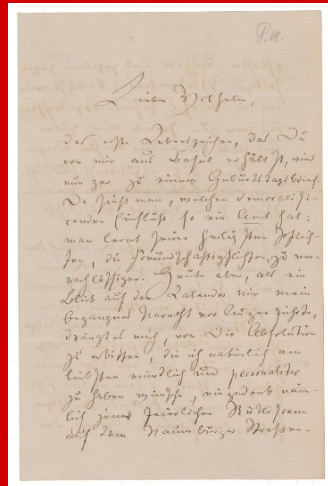 P. 18.
Lieber Wilhelm,
das erste Lebenszeichen, das Du
von mir aus Basel erhältst, wird
nun gar zu einem Geburtstagsbrief.
Da sieht man, welchen demoralisi-
renden Einfluß so ein Amt hat:
man lernt seine heiligsten Pflich-
ten, die Freundschaftspflichten, zu ver-
nachlässigen. Heute aber, als ein
Blick auf den Kalender mir mein
begangenes Unrecht vor Augen führte,
drängt es mich, von Dir Absolution
zu erbitten, die ich natürlich am
liebsten mündlich und personaliter
zu haben wünsche, eingedenk näm-
lich jener feierlichen Rütliscene
auf dem Naumburger Strassen-